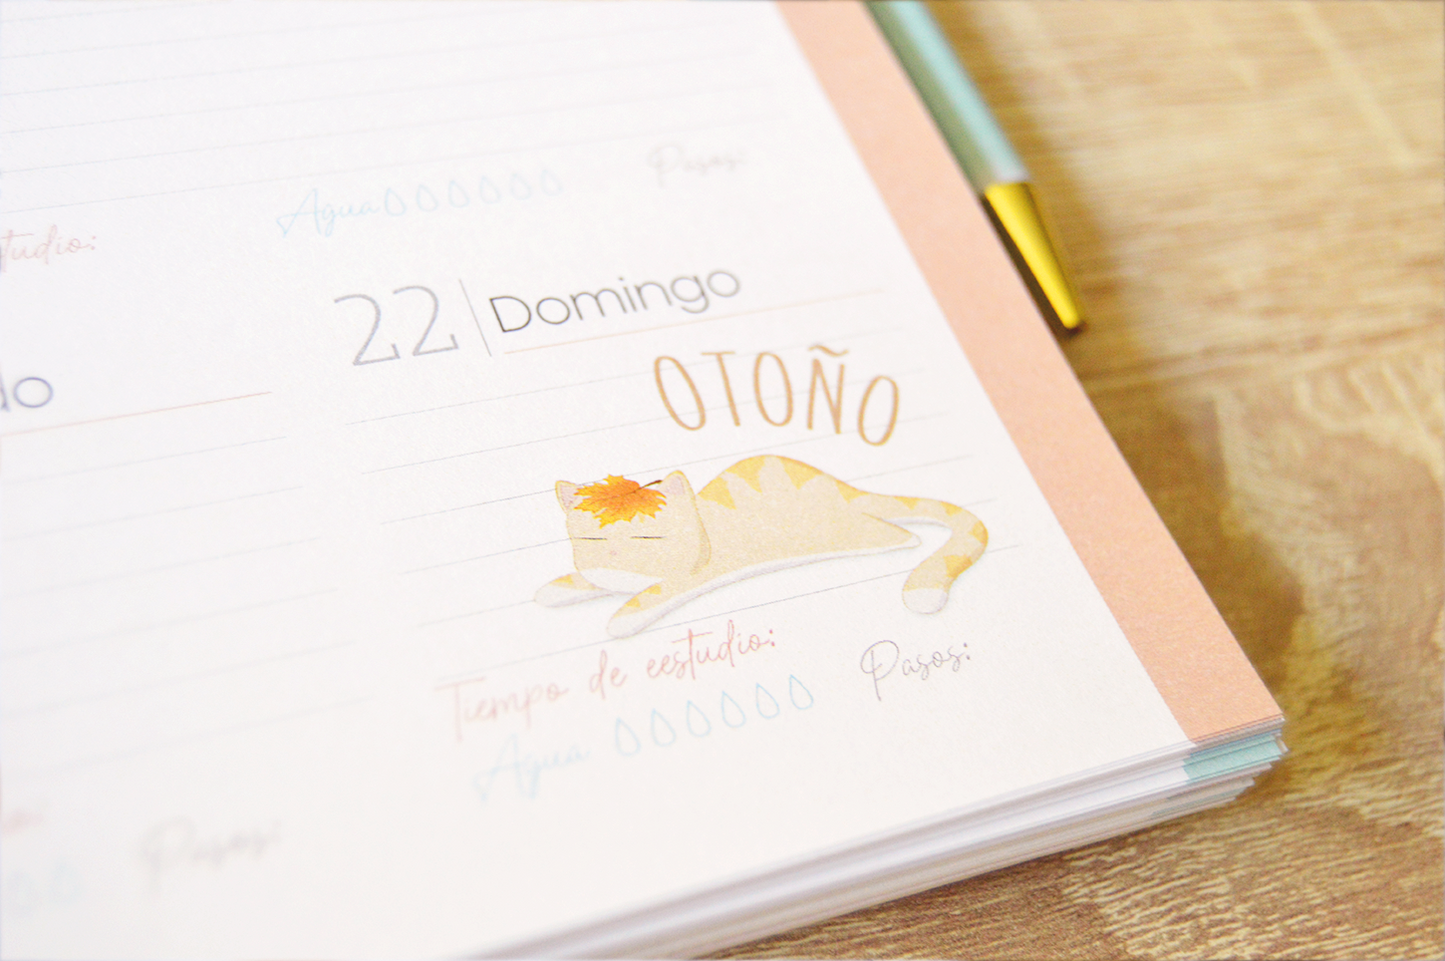 Agua Pasos:
tudio:
22 Domingo
do
OTOÑO
Tiempo de eestudio:
Agua Pasos:
Pasos: